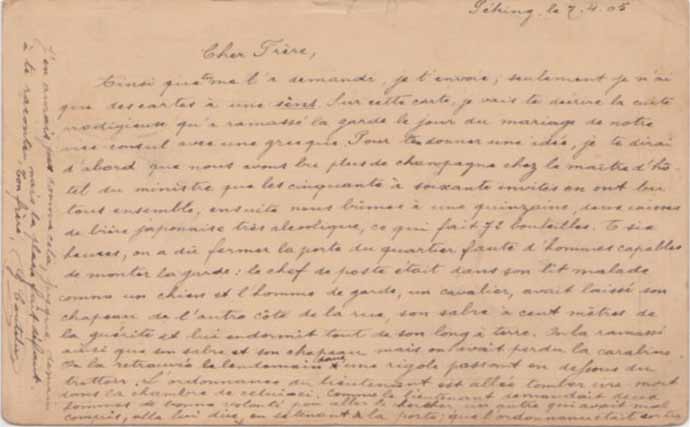 Péking, le 7.4.05
Cher Frère,
Ainsi que tu me l'a demandé, je t'envoie, seulement je n'ai
que des cartes à une sens. Sur cette carte, je vais te décrire la cuite
prodigieuse qu'a ramassé la garde le jour du mariage de notre
vice consul avec une grecque. Pour te donner une idée, je te dirai
d'abord que nous avons bu plus de champagne chez le maître d'hô-
tel du ministre que les cinquante à soixante invités en ont bu
tous ensemble, ensuite nous bûmes à une quinzaine, deux caisses
de bière japonaise très alcoolique, ce qui fait 72 bouteilles. à six
heures, on a dû fermer la porte du quartier faute d'hommes capables
de monter la garde: le chef de poste était dans son lit malade
comme un chien et l'homme de garde, un cavalier, avait laissé son
chapeau de l'autre côté de la rue, son sabre à cent mètres de
la guérite et lui endormit tout de son long à terre. On l'a ramassé
ainsi que son sabre et son chapeau mais on avait perdu la carabine.
On l'a retrouvée le lendemain dans une rigole passant en dessous du
trottoir. L'ordonnance du lieutenant est allée tomber ivre mort
dans la chambre de celui-ci. Comme le lieutenant demandait deux
hommes de bonne volonté pour aller le chercher un autre qui avait mal
compris, alla lui dire, en se tenant à la porte, que l'ordonnance était
J'en aurais pas comme cela jusque demain
à te raconter, mais la place fait défaut
Ton frère,